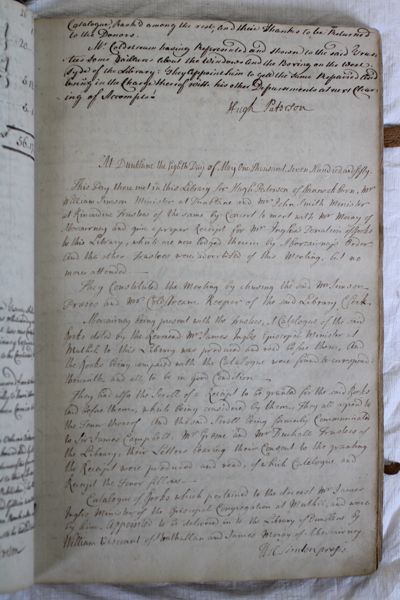 Catalogue, Rank'd among the rest, and their Thanks to be Returned
to the Donors.
Mr Coldstream having Represented and shown to the said Trus-
tees some Failures about the Windows and the Boxing on the West
Syde of the Library: They Appoint him to get the same Repaired and
bring in the Charge thereof with his other Depursements at next Clear-
ing of Accompts.
Hugh Paterson
At Dunblane the Eighth Day of May One thousand Seven Hundred and fifty
This Day there met in this Library Sir Hugh Paterson of Bannockburn, Mr
William Simson Minister at Dunblane and Mr John Smith Minister
at Kincardine Trustees of the same by Concert to meet with Mr Moray of
Abercairney and give a proper Receipt for Mr Inglis's Donation of Books
to this Library, which are now lodged therein by Abercairney's Order
And the other Trustees were advertised of this Meeting, but no
more attended
They Constituted the Meeting by chusing the said Mr Simson
Præses and Mr Coldstream Keeper of the said Library Clerk.
Abercairney being present with the Trustees, A Catalogue of the said
Books doted by the Reverend Mr James Inglis Episcopal Minister at
Muthil to this Library was produced and read
the Books being compared with the Catalogue were found to correspond
therewith and all to be in Good Condition
They had also the Scroll of a Receipt to be granted for the said Books
and before them, which being considered by them, They all agreed to
the Tenor thereof And the said Scroll being formerly Communicate
to Sir James Campbell, Mr Græme and Mr Trustees of
the Library, their Letters bearing their Consent to the granting
the Receipt were produced and read, of which Catalogue and
Receipt the Tenor follows.
Catalogue of Books which pertained to the deceast Mr James
Inglis Minister of the Episcopal Congregation at Muthil, and were
by him Appointed to be delivered in to the Library of Dunblane by
William Viscount of Strathallan and James Moray of Abercairney
Will: Simson præses